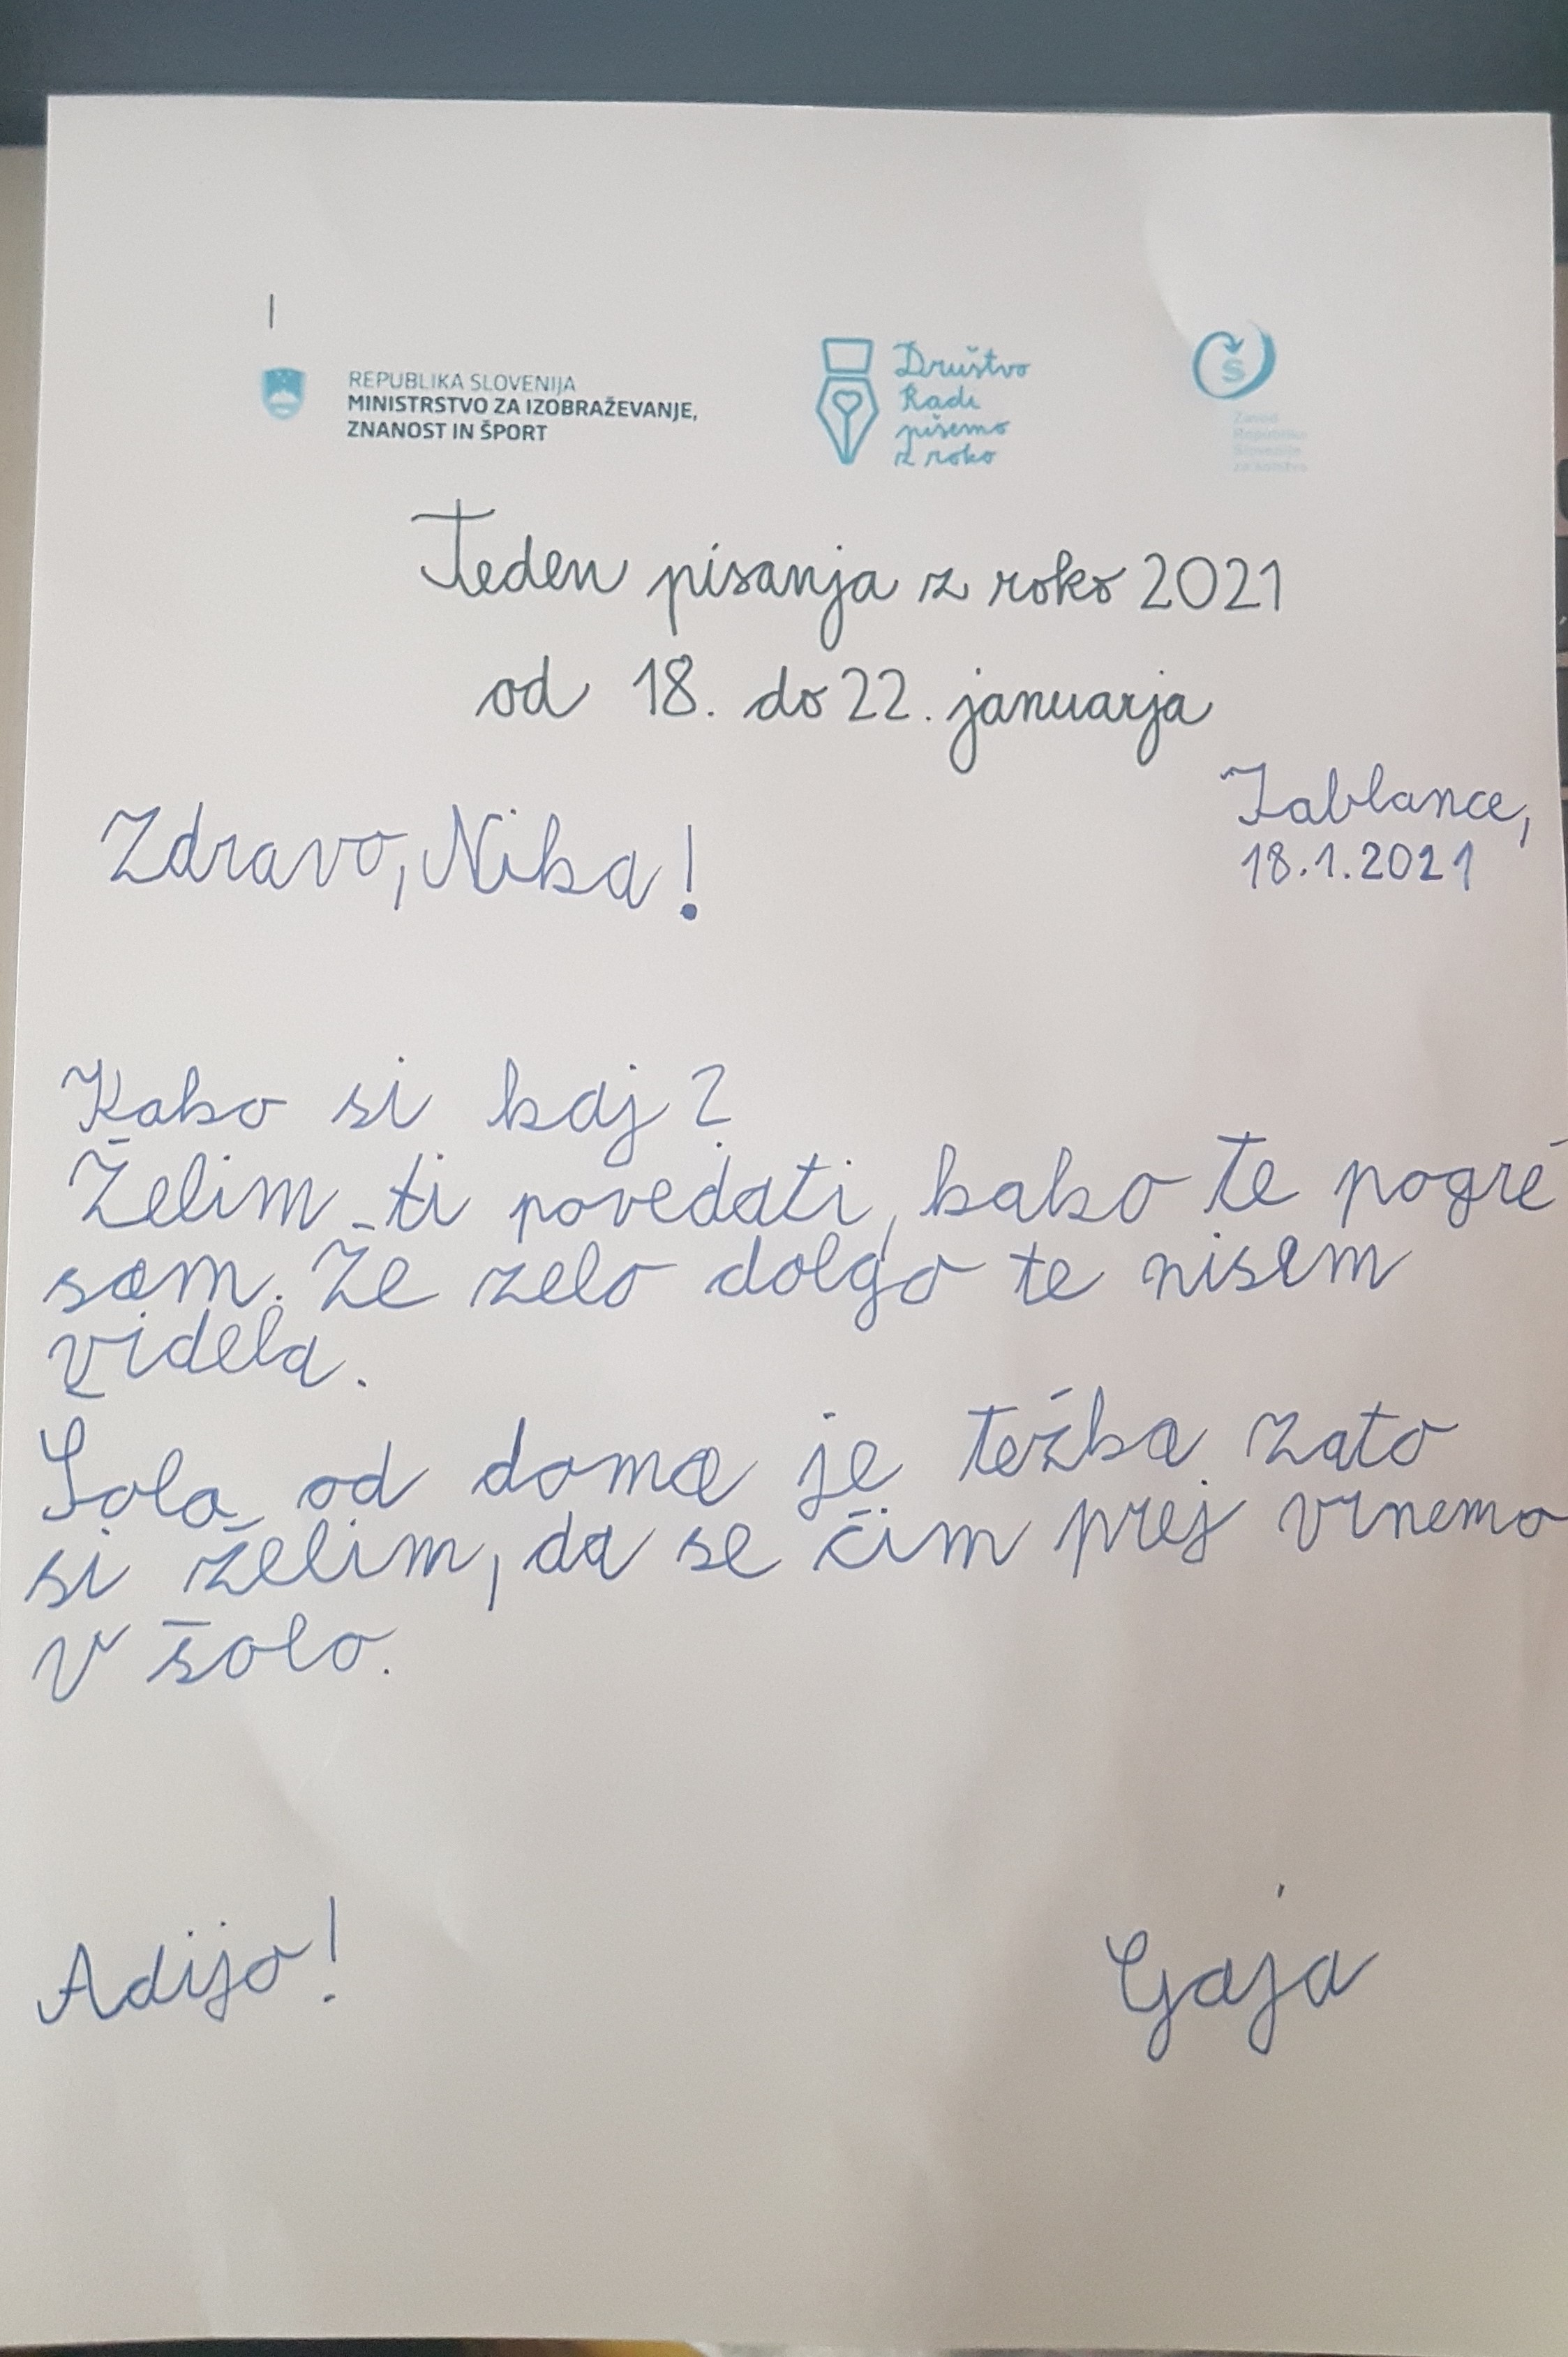 REPUBLIKA SLOVENIJA
MINISTRSTVO ZA IZOBRAŽEVANJE,
ZNANOST IN ŠPORT
Društvo
Radi
pišemo
z roko
Š
Zavod
Republike
Slovenije
za šolstvo
Teden pisanja z roko 2021
od 18. do 22. januarja
Jablance,
18.1.2021
Zdravo, Nika!
Kako si kaj?
Želim ti povedati, kako te pogré
sam. Že zelo dolgo te nisem
videla.
Šola od doma je težka zato
si želim, da se čim prej vrnemo
v šolo.
Adijo!
Gaja